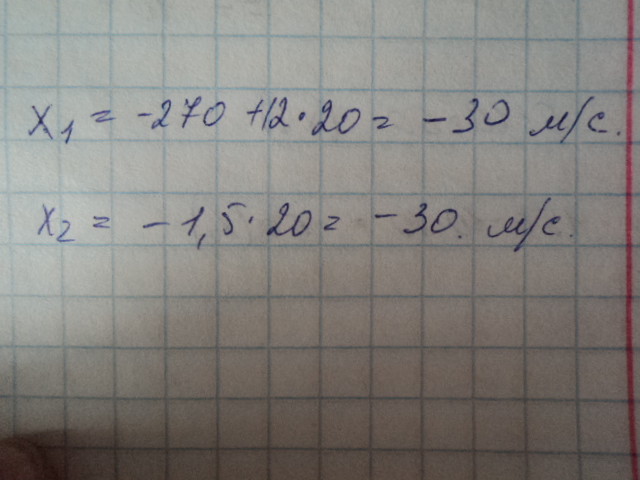 x₁ = -270 +12·20 = -30 м/с.
x₂ = -1,5·20 = -30. м/с.